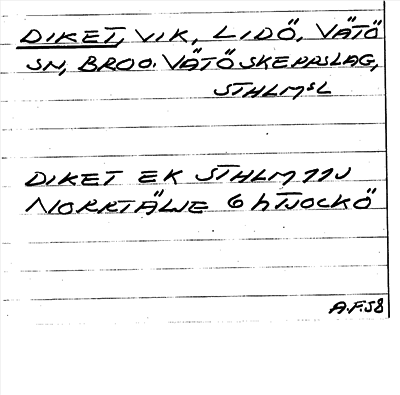 DIKET, VIK, LIDÖ, VÄTÖ
SN, BRO O. VÄTÖ SKEPPSLAG,
STHLMSL
DIKET EK STHLM 11J
NORRTÄLJE 6 h TJOCKÖ
A.F. 58